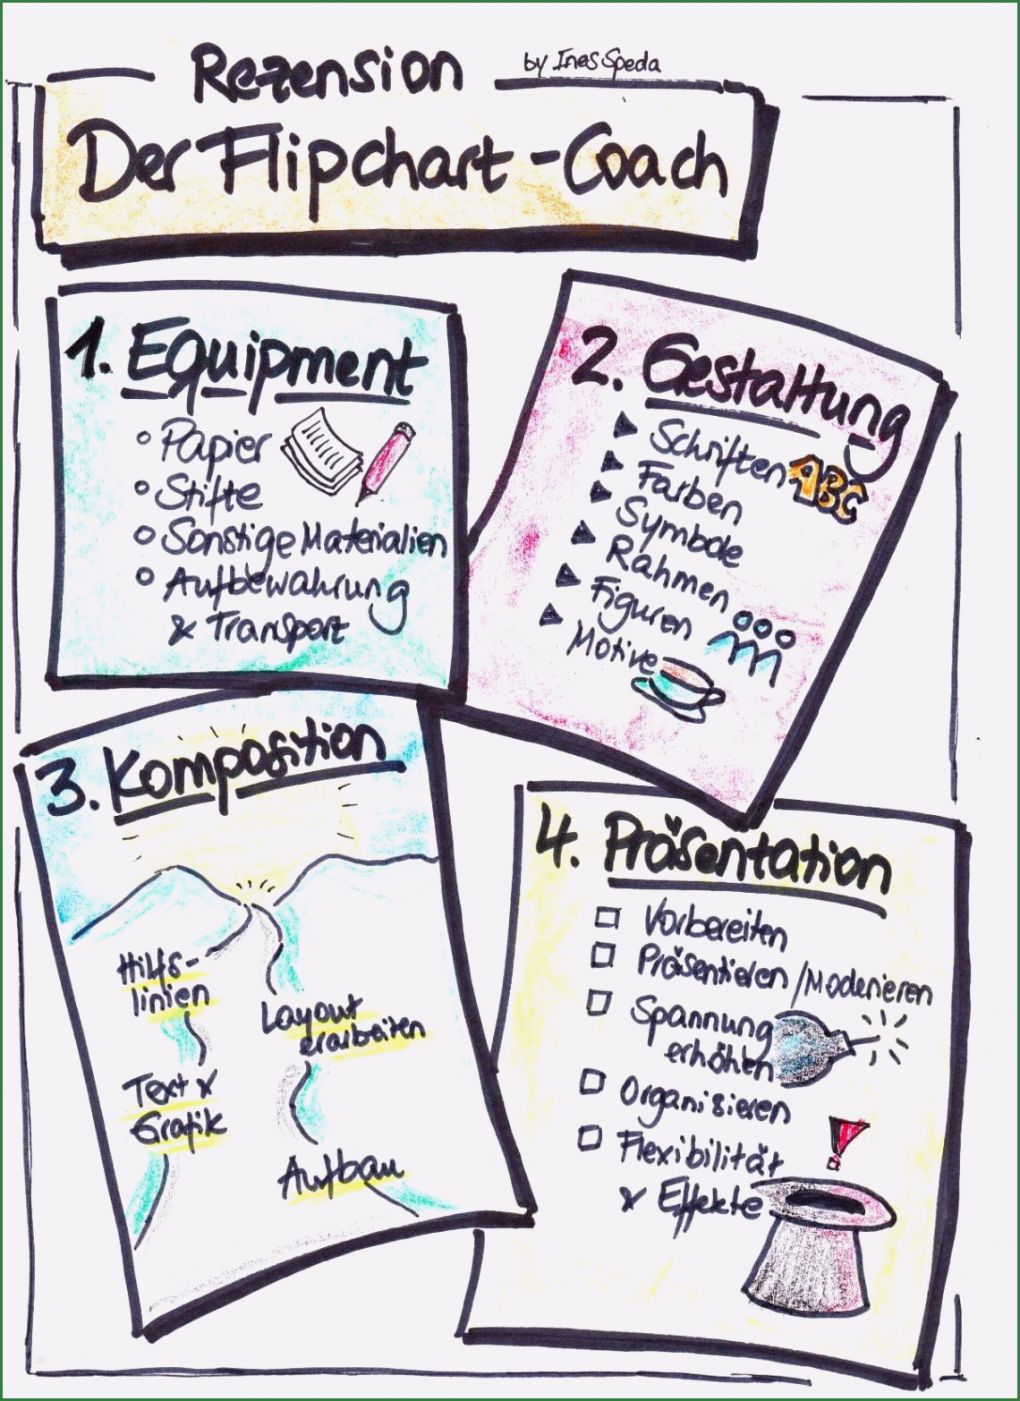 Rezension
by Ines Speda
Der Flipchart-Coach
1. Equipment
Papier
Stifte
Sonstige Materialien
Aufbewahrung
& Transport
2. Gestaltung
Schriften ABC
Farben
Symbole
Rahmen
Figuren
Motive
3. Komposition
Hilfs-
linien
Layout
erarbeiten
Text &
Grafik
Aufbau
4. Präsentation
Vorbereiten
Präsentieren/Moderieren
Spannung
erhöhen
Organisieren
Flexibilität
& Effekte
!